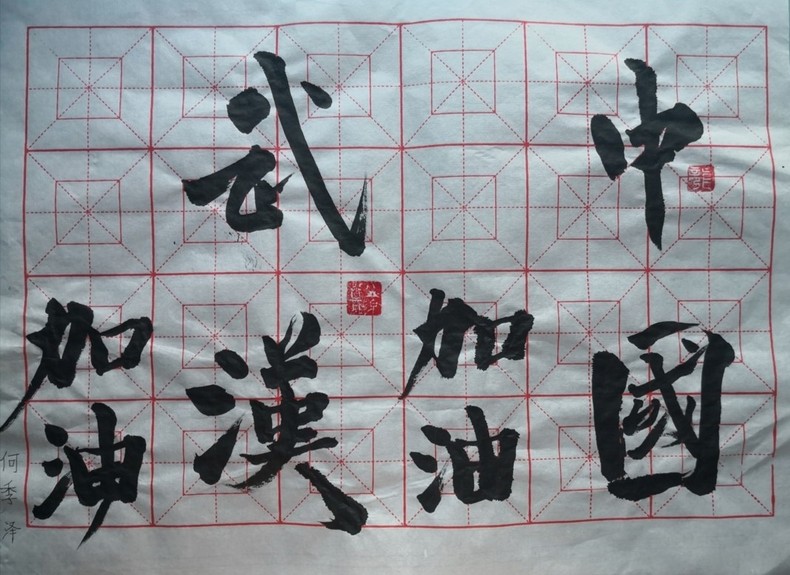 中國
加油
武漢
加油
何季泽